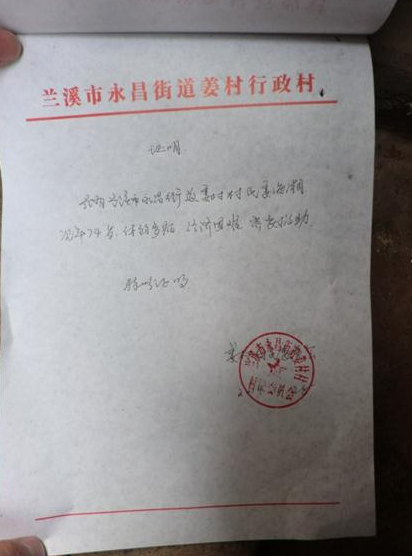 兰溪市永昌街道姜村行政村
证明
兹有兰溪市永昌街道姜村村民姜海潮
现年74岁,体弱多病,经济困难,需要救助
特此证明